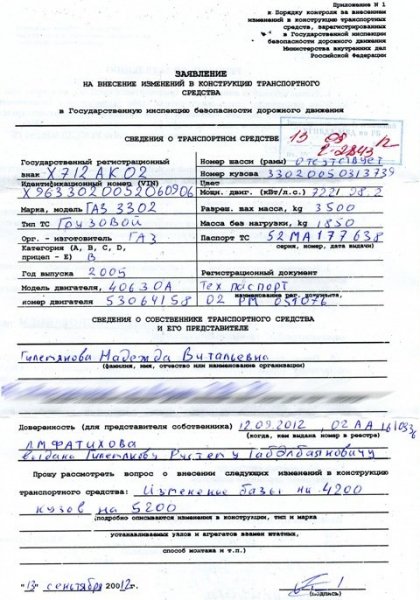 Приложение N 1
к Порядку контроля за внесением
изменений в конструкцию транспортных
средств, зарегистрированных
в Государственной инспекции
безопасности дорожного движения
Министерства внутренних дел
Российской Федерации
ЗАЯВЛЕНИЕ
НА ВНЕСЕНИЕ ИЗМЕНЕНИЙ В КОНСТРУКЦИЮ ТРАНСПОРТНОГО
СРЕДСТВА
в Государственную инспекцию безопасности дорожного движения
СВЕДЕНИЯ О ТРАНСПОРТНОМ СРЕДСТВЕ
13 09 12
Государственный регистрационный
знак Х712АК02
Идентификационный номер (VIN)
X9633020052060906
Марка, модель ГАЗ 3302
Тип ТС Грузовой
Орг. - изготовитель ГАЗ
Категория (А, В, С, D,
прицеп - Е) В
Год выпуска 2005
Модель двигателя, 40630А
номер двигателя 53064158
Номер шасси (рамы) отсутствует
Номер кузова 33020050313739
Цвет
Мощн. двиг. (кВт/л.с.)
Разреш. мах масса, kg 3500
Масса без нагрузки, kg 1850
Паспорт ТС 52МА177638
серия, номер, дата выдачи)
Регистрационный документ
Тех паспорт
наименование рег. документа,
02 РМ 051076
СВЕДЕНИЯ О СОБСТВЕННИКЕ ТРАНСПОРТНОГО СРЕДСТВА
И ЕГО ПРЕДСТАВИТЕЛЕ
Надежда Витальевна
(фамилия, имя, отчество или наименование организации)
Доверенность (для представителя собственника) 12.09.2012, 02 АА
(когда, кем выдана номер в реестре)
ЛМФАТИХОВА
выдано Рустему
Прошу рассмотреть вопрос о внесении следующих изменений в конструкцию
транспортного средства: Изменение базы на 4200
кузов на 5200
(подробно описываются изменения в конструкции, тип и марка
устанавливаемых узлов и агрегатов взамен штатных,
способ монтажа и т.п.)
"13" сентября 20012г.
(подпись)